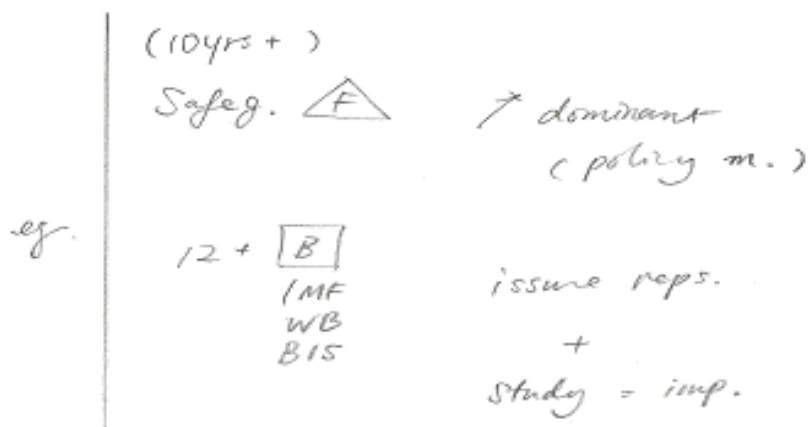 (10yrs + )
Safeg. F ↗ dominant
(policy m.)
eg.
12 + B
IMF issure reps.
WB
BIS +
study = imp.